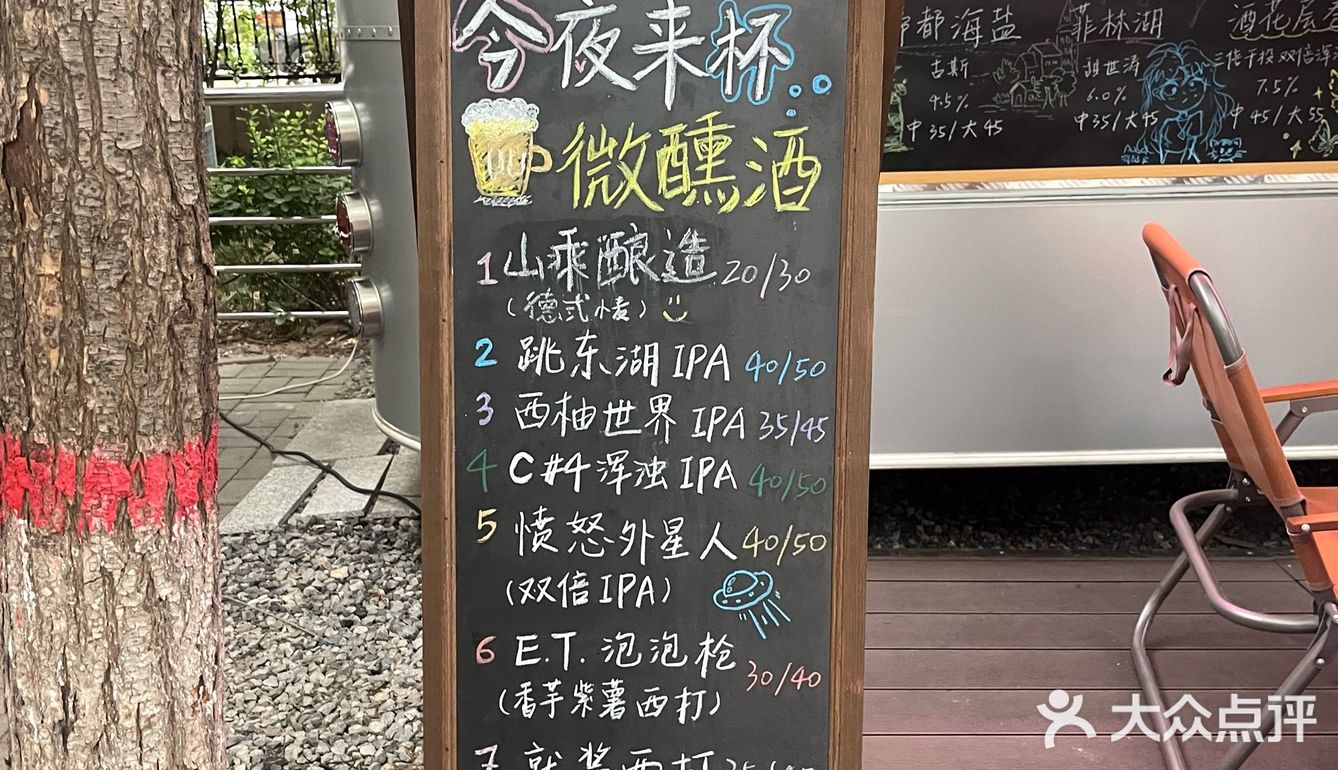 今夜来杯..
微醺酒
1 山乘酿造 20/30
(德式小麦)
2 跳东湖IPA 40/50
3 西柚世界IPA 35/45
4 C#4浑浊IPA 40/50
5 愤怒外星人 40/50
(双倍IPA)
6 E.T.泡泡枪 30/40
(香芋紫薯西打)
7
西打
都海盐
古斯
4.5%
中35/大45
菲林湖
胡世涛
6.0%
中35/大45
酒花层
倍干投双倍浑
7.5%
中45/大55
大众点评